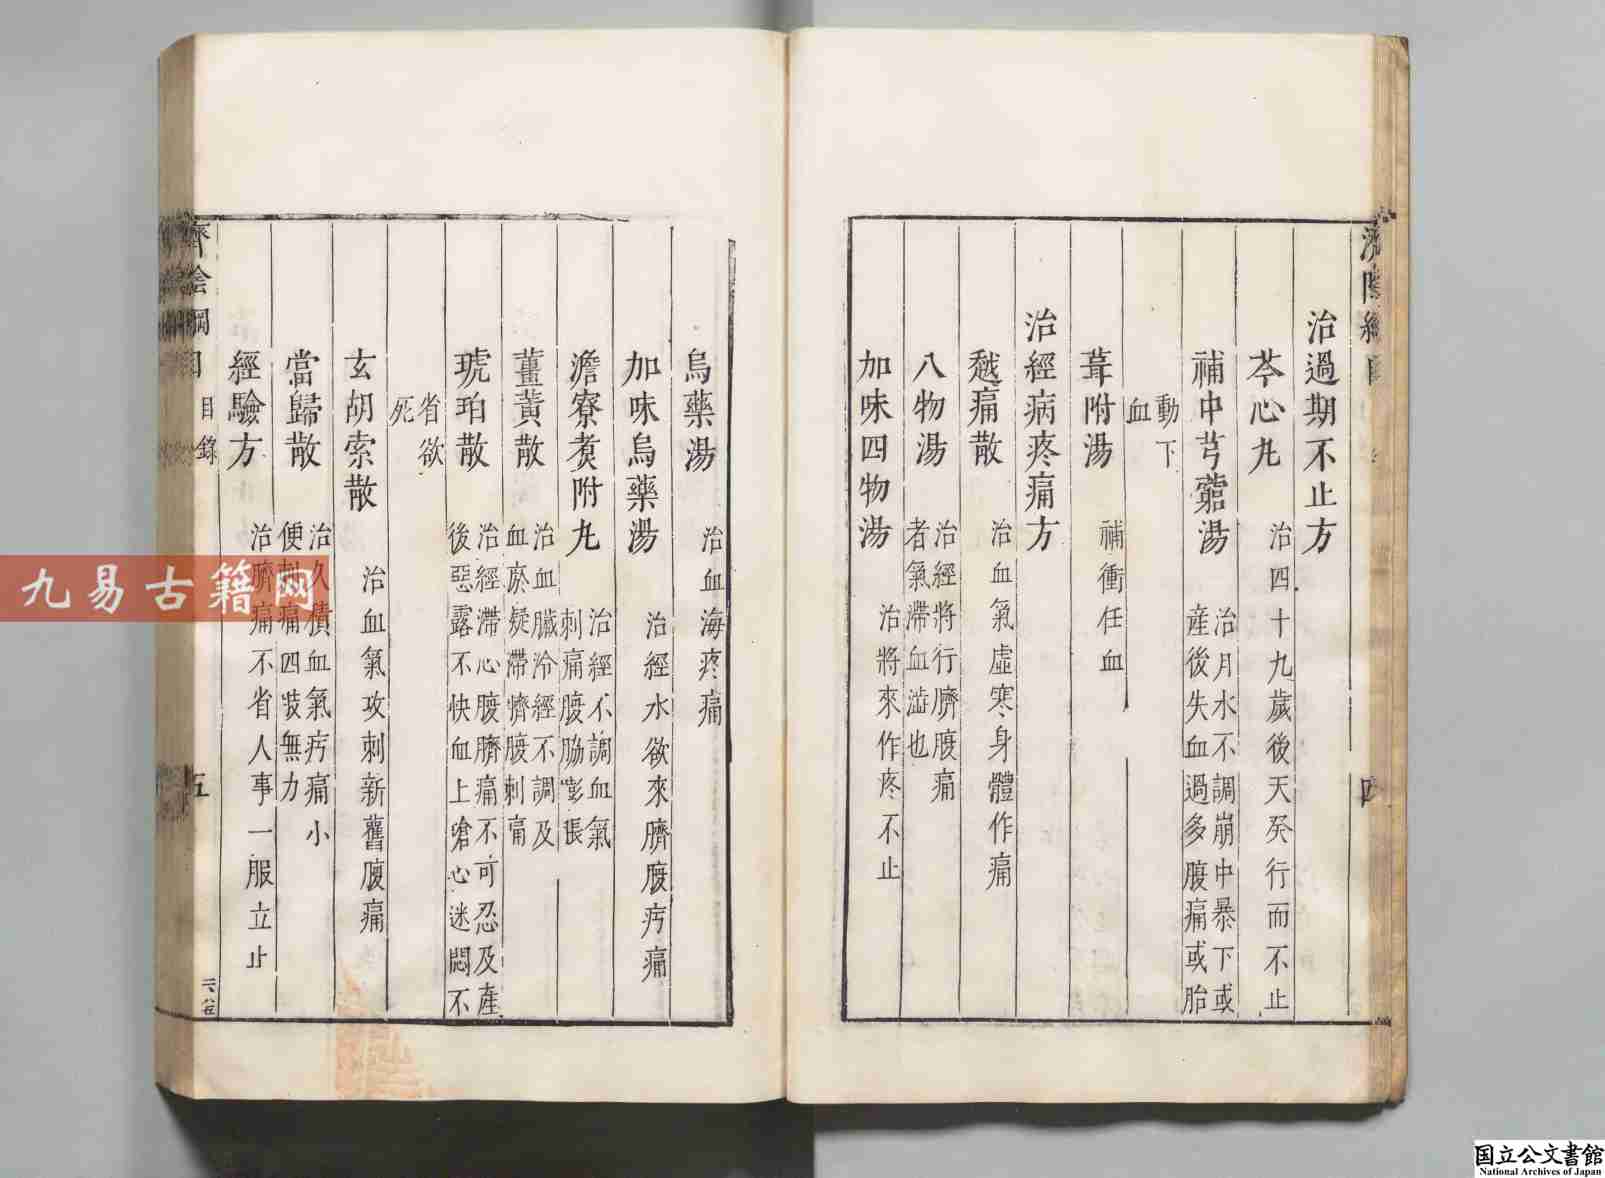 治過期不止方
芩心丸 治四十九歲後天癸行而不止
補中芎藭湯 治月水不調崩中暴下或
產後失血過多腹痛或胎
動下
血
葺附湯 補衝任血
治經病疼痛方
越痛散 治血氣虛寒身體作痛
八物湯 治經將行臍腹痛
者氣滯血澁也
加味四物湯 治將來作疼不止
烏藥湯 治血海疼痛
加味烏藥湯 治經水欲來臍腹㽲痛
澹寮煑附丸 治經不調血氣
刺痛腹脇膨張
薑黄散 治血臟冷經不調及
血瘀疑滯臍腹刺痛
琥珀散 治經滯心腹臍痛不可忍及產
後惡露不快血上嗆心迷悶不
省欲
死
玄胡索散 治血氣攻刺新舊腹痛
當歸散 治久積血氣㽲痛小
便刺痛四裝無力
經驗方 治臍痛不省人事一服立止
濟陰綱目 目錄
五
九易古籍网
国立公文書館
National Archives of Japan